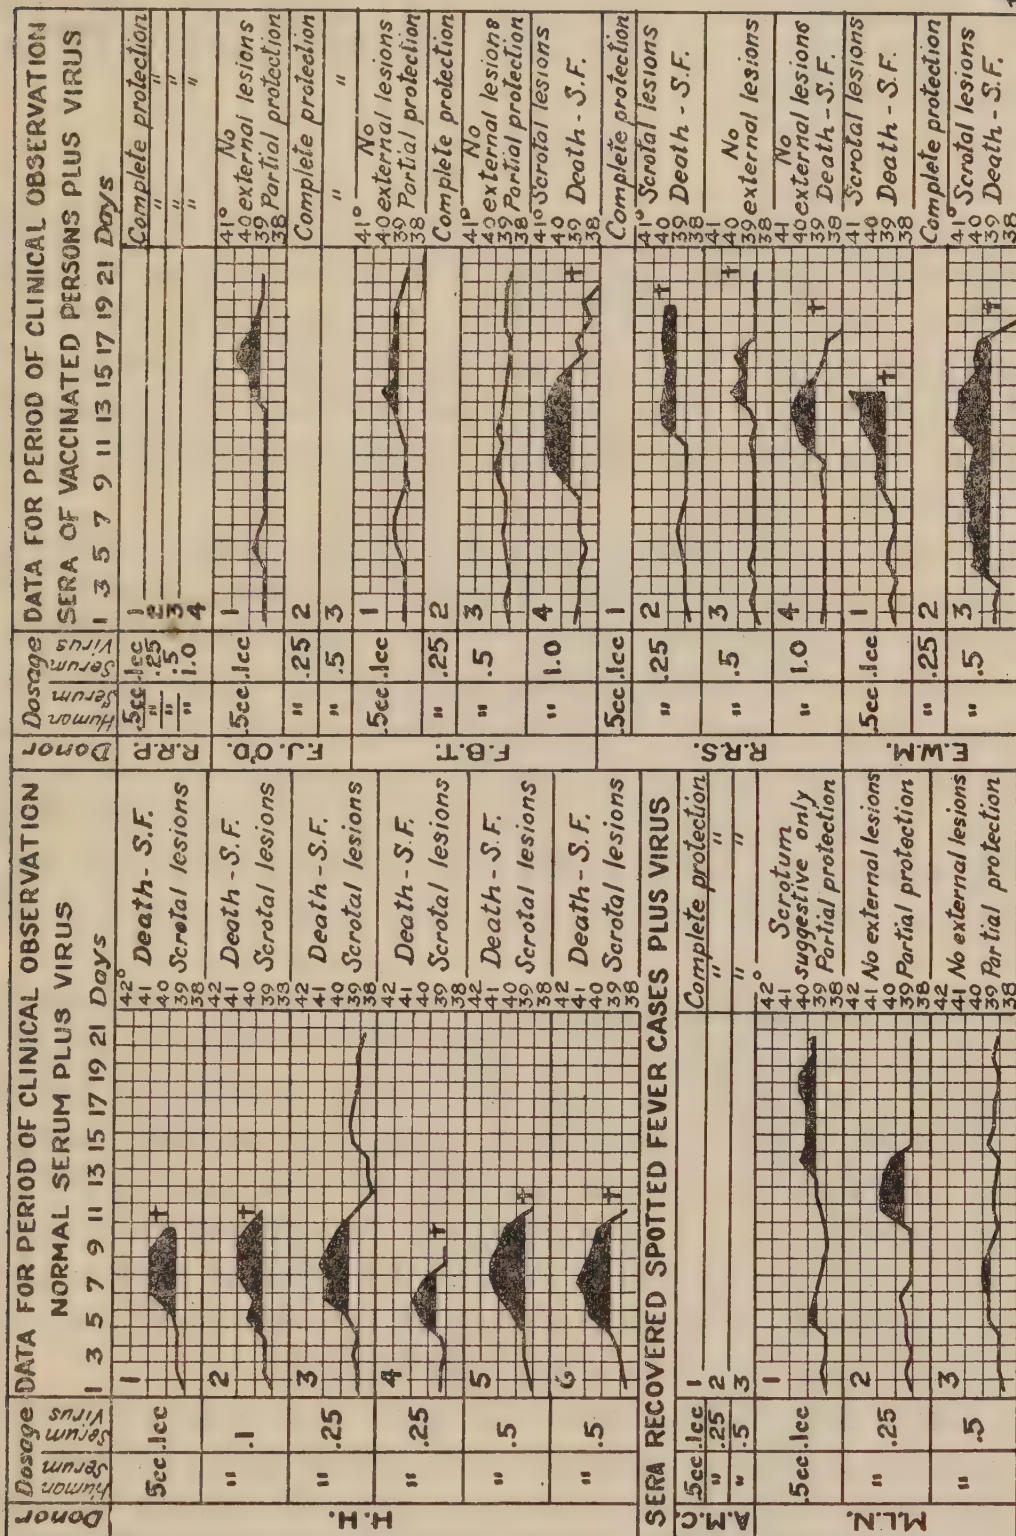 Donor
Dosage
Human Serum
Serum Virus
DATA FOR PERIOD OF CLINICAL OBSERVATION
NORMAL SERUM PLUS VIRUS
1 3 5 7 9 11 13 15 17 19 21 Days
H.H.
.5cc .1cc 1 42° 41 40 39 38 Death - S.F.
Scrotal lesions
" .1 2 42 41 40 39 38 Death - S.F.
Scrotal lesions
" .25 3 42 41 40 39 38 Death - S.F.
Scrotal lesions
" .25 4 42 41 40 39 38 Death - S.F.
Scrotal lesions
" .5 5 42 41 40 39 38 Death - S.F.
Scrotal lesions
" .5 6 42 41 40 39 38 Death - S.F.
Scrotal lesions
SERA RECOVERED SPOTTED FEVER CASES PLUS VIRUS
A.M.C.
.5cc .1cc 1 Complete protection
" .25 2 " "
" .5 3 " "
M.L.N.
.5cc .1cc 1 42° 41 40 39 38 Scrotum
suggestive only
Partial protection
" .25 2 42 41 40 39 38 No external lesions
Partial protection
" .5 3 42 41 40 39 38 No external lesions
Partial protection
Donor
Dosage
Human Serum
Serum Virus
DATA FOR PERIOD OF CLINICAL OBSERVATION
SERA OF VACCINATED PERSONS PLUS VIRUS
1 3 5 7 9 11 13 15 17 19 21 Days
R.R.P.
.5cc .1cc 1 Complete protection
" .25 2 " "
" .5 3 " "
" 1.0 4 " "
F.J.O'D.
.5cc .1cc 1 41° 40 39 38 No
external lesions
Partial protection
" .25 2 Complete protection
" .5 3 " "
F.B.T.
.5cc .1cc 1 41° 40 39 38 No
external lesions
Partial protection
" .25 2 Complete protection
" .5 3 41° 40 39 38 No
external lesions
Partial protection
" 1.0 4 41° 40 39 38 Scrotal lesions
Death - S.F.
R.R.S.
.5cc .1cc 1 Complete protection
" .25 2 41° 40 39 38 Scrotal lesions
Death - S.F.
" .5 3 41 40 39 38 No
external lesions
" 1.0 4 41 40 39 38 No
external lesions
Death - S.F.
E.W.M.
.5cc .1cc 1 41 40 39 38 Scrotal lesions
Death - S.F.
" .25 2 Complete protection
" .5 3 41° 40 39 38 Scrotal lesions
Death - S.F.